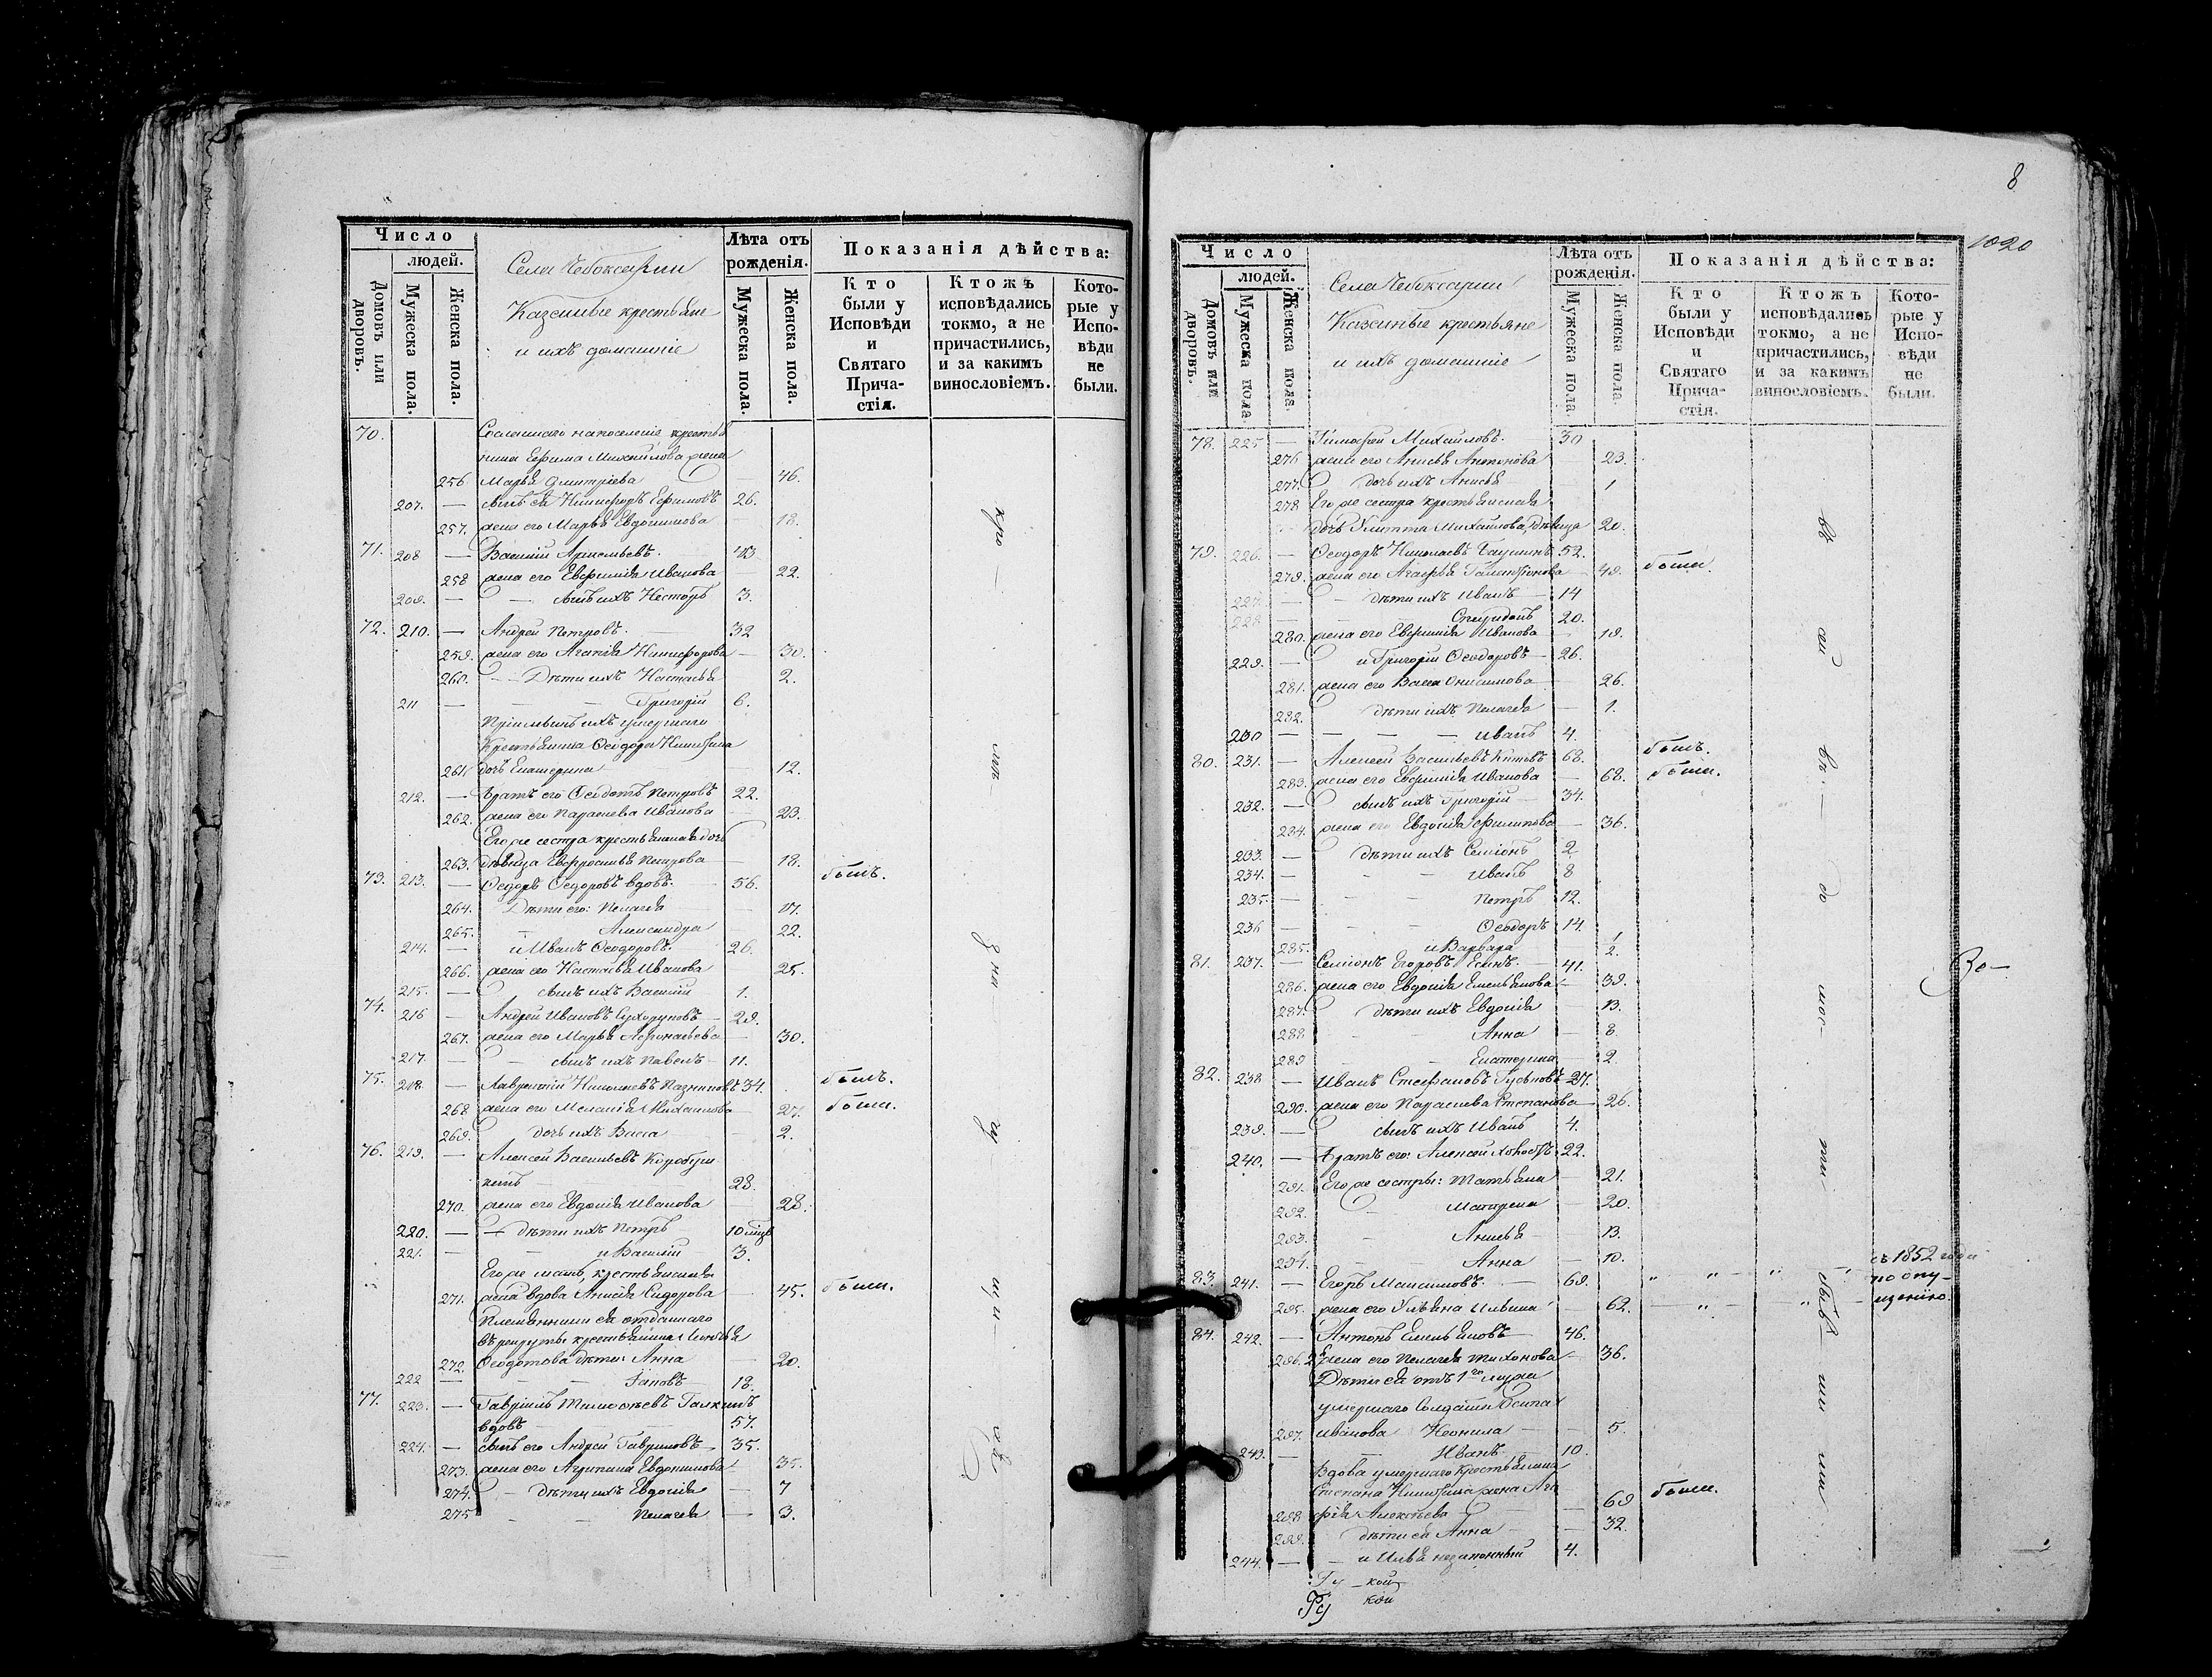 Число
людей.
Домовъ или дворовъ.
Мужеска пола.
Женска пола.
Села Чебоксарки
Казенные крестьяне
и ихъ домашніе
Лѣта отъ рожденія.
Мужеска пола.
Женска пола.
Показанія дѣйства:
Кто были у Исповѣди и Святаго Прича-стія.
Ктожъ исповѣдались токмо, а не причастились, и за какимъ винословіемъ.
Кото-рые у Испо-вѣди не были.
70. Сосланнаго на поселеніе крестья
нина Ефима Михайлова жена
256 Марья Дмитріева 46.
207. — сынъ ея Никифоръ Ефимовъ 26.
257. жена его Марья Евдокимова — 18.
71. 208 — Василій
258 жена его Евфимія Иванова — 22.
209. — сынъ ихъ Несторъ 3.
72. 210. — Андрей Петровъ. 32
259. жена его Агапія Никифорова — 30.
260. — Дѣти ихъ Настасья 2.
211 — Григорій 6.
умершаго
Крестьянина Ѳеодора Никитина
261. дочь Екатерина 12.
212. — Братъ его Ѳеодотъ Петровъ 22.
262. жена его Параскева Иванова — 23.
Его же сестра крестьянская дочь
263. дѣвица Евфросинья Петрова — 18.
73. 213. — Ѳедоръ Ѳедоровъ вдовъ. 56. былъ.
264. Дѣти его: Пелагея — 17.
265. — Александра 22.
214. — и Иванъ Ѳеодоровъ. 26.
266. жена его Настасья Иванова 25.
215. — сынъ ихъ Василій 1.
74. 216 — Андрей Ивановъ Сухоруковъ 29.
267. жена его Марья Афонасьева — 30.
217 — сынъ ихъ Павелъ 11.
75. 218. — Лаврентій Николаевъ 34. былъ.
268 жена его Меланія Михайлова 27. была.
269. дочь ихъ Васса 2.
76. 219. — Алексей Васильевъ Коробуш
кинъ 28.
270. жена его Евдокія Иванова 28.
220. — дѣти ихъ Петръ 10 мцв
221. — и Василій 3.
Его же мать, крестьянская
271. жена вдова Анисія Сидорова — 45. была.
Племянники ея отданнаго
въ рекруты крестьянина
272. Ѳеодотова дѣти: Анна — 20.
222 — Іаковъ 18.
77. 223. — Гавріилъ Тимоѳеевъ Галкинъ
вдовъ 57.
224. — сынъ его Андрей Гавриловъ 35.
273. жена его Агрипина Евдокимова 35.
274. — дѣти ихъ Евдокія — 7
275 — Пелагея — 3.
8
1020
Число
людей.
Домовъ или дворовъ.
Мужеска пола.
Женска пола.
Села Чебоксарки
Казенные крестьяне
и ихъ домашніе
Лѣта отъ рожденія.
Мужеска пола.
Женска пола.
Показанія дѣйства:
Кто были у Исповѣди и Святаго Прича-стія.
Ктожъ исповѣдались токмо, а не причастились, и за какимъ винословіемъ.
Кото-рые у Испо-вѣди не были.
78. 225 — Тимофей Михайловъ. 30
276 жена его Анисья Антонова 23.
277. дочь ихъ Анисья 1
278 Его же сестра крестьянская
дочь Улитта Михайлова, дѣвица 20.
79. 226. — Ѳеодоръ Николаевъ 52.
279. жена его Агафья 49. была.
227. — дѣти ихъ Иванъ 14
228 — Спиридонъ 20.
280. жена его Евфимія Иванова 19.
229. — и Григорій Ѳеодоровъ 26.
281. жена его Васса Онисимова 26.
282. дѣти ихъ Пелагея — 1.
230 — Иванъ 4.
80. 231. — Алексей Васильевъ Китовъ 68. былъ.
283. жена его Евфимія Иванова — 68. была.
232. — сынъ ихъ Григорій 34.
284. жена его Евдокія Филипова — 36.
233. — дѣти ихъ Семіонъ 2
234. — Иванъ 8
235. — Петръ 12.
236 — Ѳеодоръ 14.
285. и Варвара 2.
81. 237. — Семіонъ Егоровъ Есинъ. 41.
286. жена его Евдокія Емельянова 39.
287. дѣти ихъ Евдокія 13.
288. Анна — 8.
289 Екатерина — 2
82. 238 — Иванъ Стефановъ Гусевовъ 27.
290. жена его Параскева Степанова 26.
239. — сынъ ихъ Иванъ 4.
240. — Братъ его: Алексей 22.
291. Его же сестры: Татьяна — 21.
292. Матрена — 20.
293. Анисья — 13.
294. Анна — 10.
83. 241. — Егоръ Максимовъ. 69. съ 1852 года
по опу-
щенію.
295. жена его Ульяна Ильина — 62.
84. 242. — Антонъ Емельяновъ 46.
296. жена его Пелагея Тихонова — 36.
Дѣти ея отъ 1го мужа
умершаго Солдата Осипа
297. Иванова Неонила — 5.
243. — Иванъ 10.
Вдова умершаго Крестьянина
Степана Никитина жена Ага
298 фія Алексѣева — 69 была.
299. дѣти ея Анна — 32.
244. — и Илья незаконный 4.